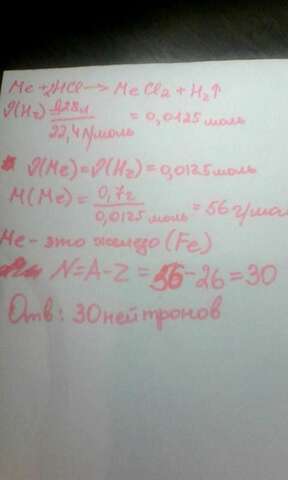 Me + 2HCl → MeCl2 + H2↑
ν(H2) 0,28л / 22,4 л/моль = 0,0125 моль
ν(Me) = ν(H2) = 0,0125 моль
M(Me) = 0,7г / 0,0125 моль = 56 г/мол
Ме - это железо (Fe)
N=A-Z = 56-26 = 30
Отв: 30 нейтронов